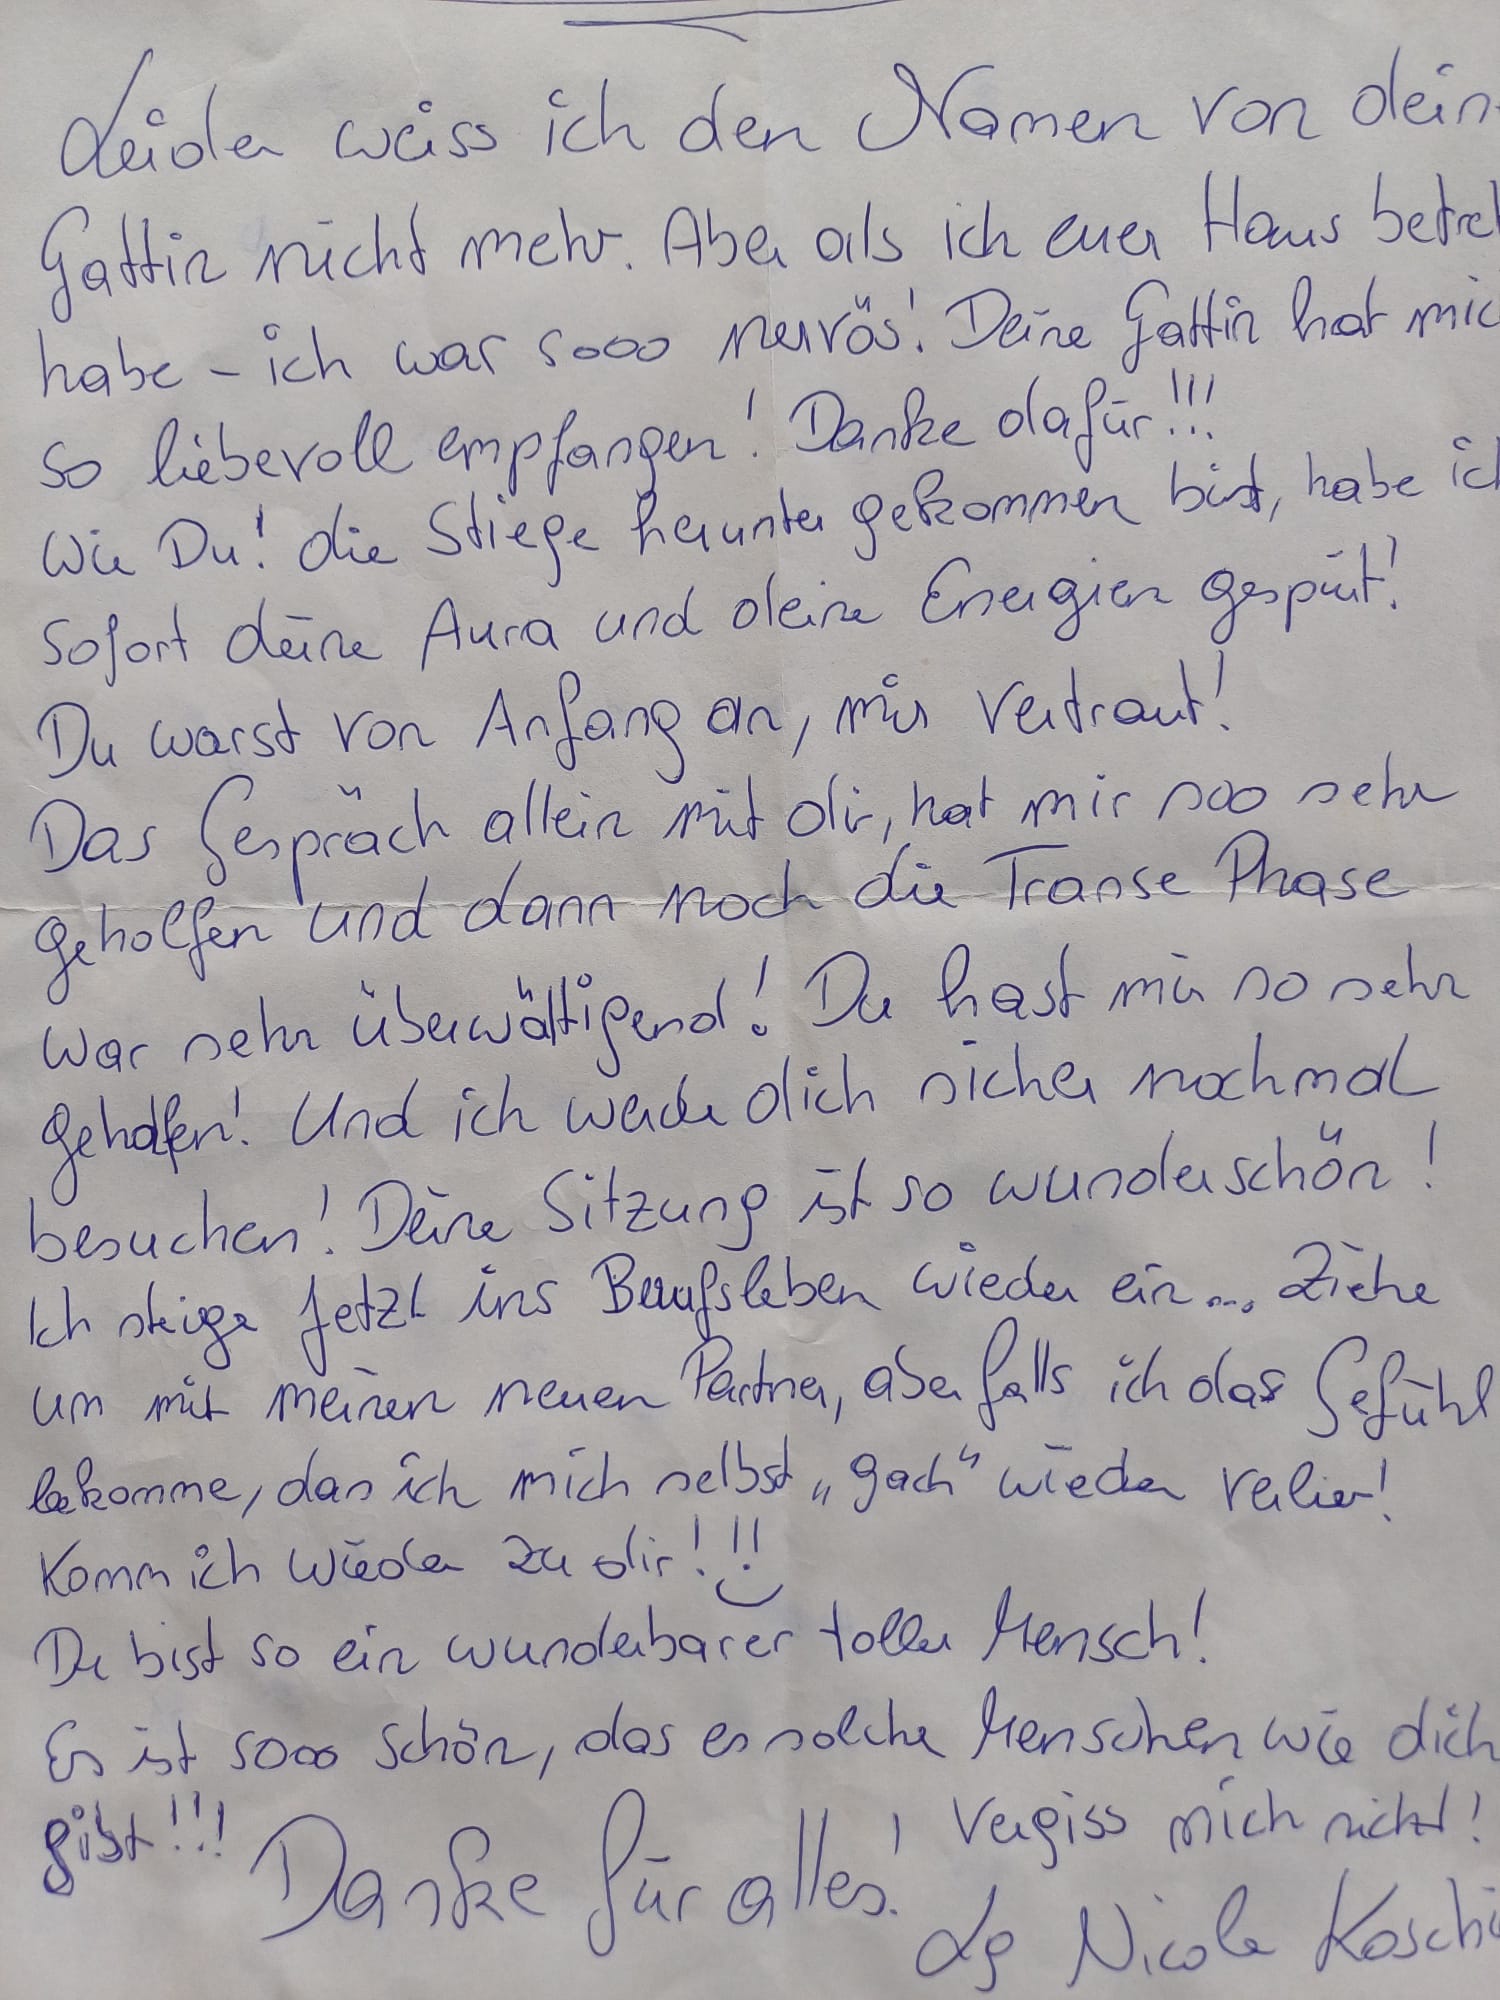 Leider weiss ich den Namen von dein
Gattin nicht mehr. Aber als ich euer Haus betret
habe - ich war sooo nervös! Deine Gattin hat mic
so liebevoll empfangen! Danke dafür!!!
Wie Du! die Stiege herunter gekommen bist, habe ich
sofort deine Aura und deine Energien gespürt!
Du warst von Anfang an, mir vertraut!
Das Gespräch allein mit dir, hat mir soo sehr
geholfen und dann noch die Transe Phase
war sehr überwältigend! Du hast mir so sehr
geholfen! Und ich werde dich sicher nochmal
besuchen! Deine Sitzung ist so wunderschön!
Ich steige jetzt ins Berufsleben wieder ein... Ziehe
um mit meinen neuen Partner, aber falls ich das Gefühl
bekomme, das ich mich selbst „gach" wieder verlier!
Komm ich wieder zu dir!!!
Du bist so ein wunderbarer toller Mensch!
Es ist sooo schön, das es solche Menschen wie dich
gibt!!! Vergiss mich nicht!
Danke für alles!
Lg Nicole Koschi